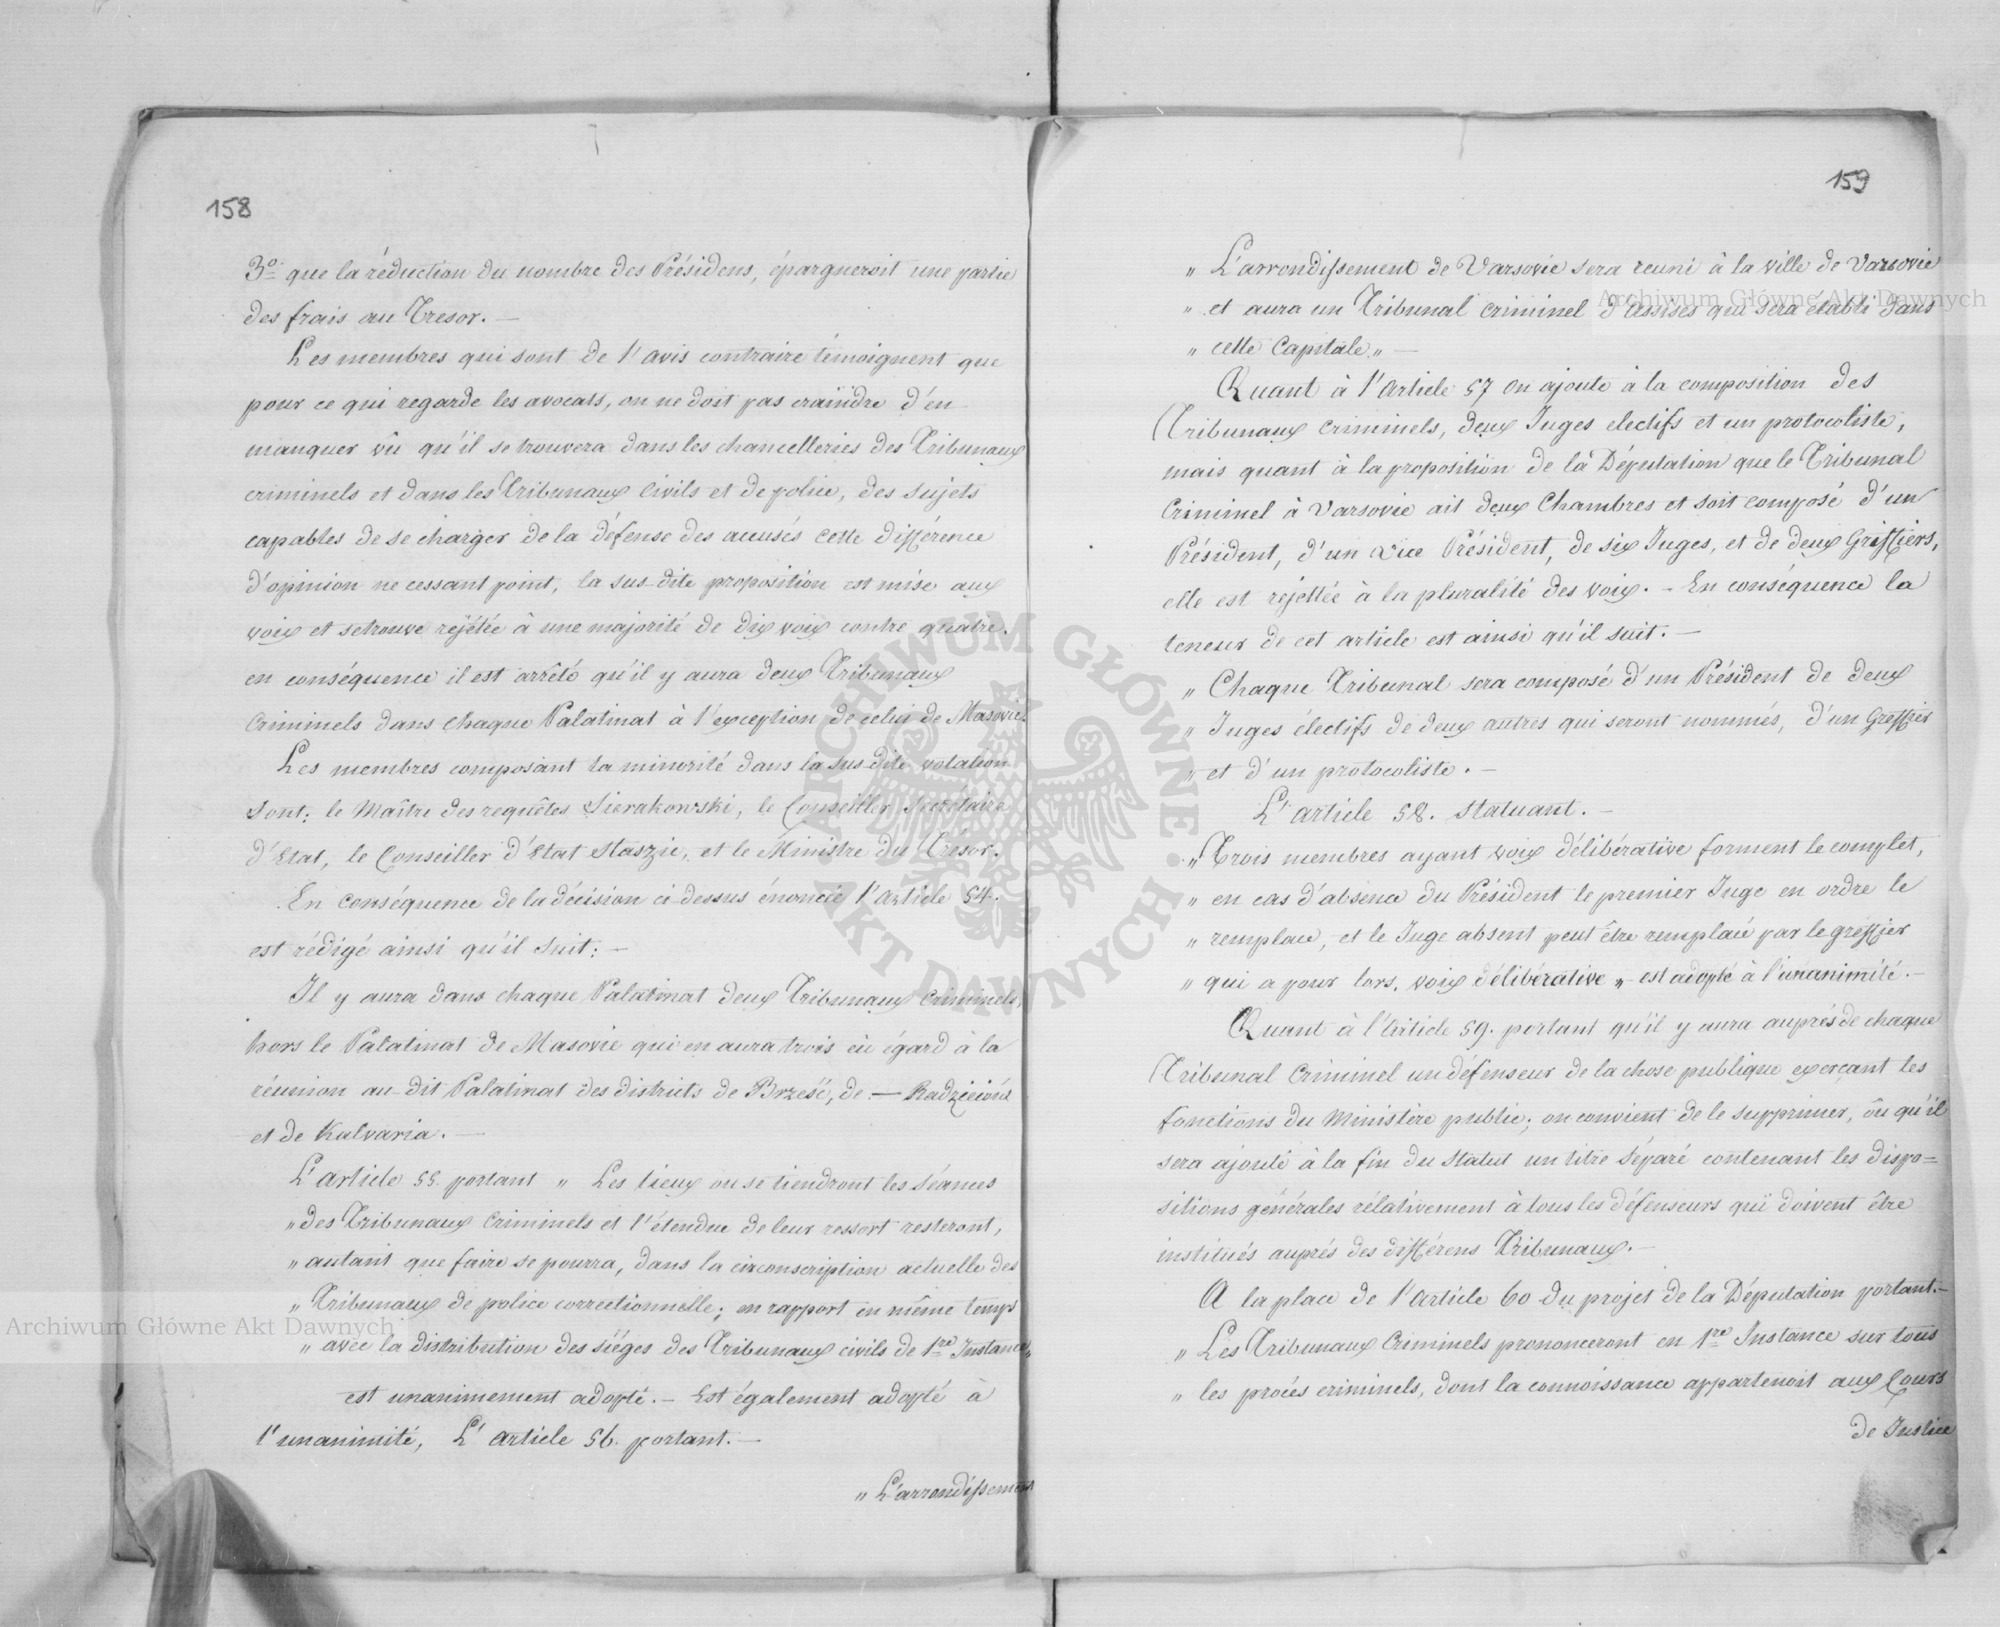 158
3º que la réduction du nombre des Présidens, épargneroit une partie
des frais au Tresor. —
Les membres qui sont de l'avis contraire témoignent que
pour ce qui regarde les avocats, on ne doit pas craindre d'en
manquer vû qu'il se trouvera dans les chancelleries des Tribunaux
criminels et dans les Tribunaux Civils et de police, des sujets
capables de se charger de la défense des accusés cette différence
d'opinion ne cessant point, la sus-dite proposition est mise aux
voix et se trouve rejétée à une majorité de dix voix contre quatre.
en conséquence il est arrêté qu'il y aura deux Tribunaux
Criminels dans chaque Palatinat à l'exception de celui de Masovie.
Les membres composant la minorité dans la sus-dite votation
sont: le Maître des requêtes Sierakowski, le Conseiller Secrétaire
d'Etat, le Conseiller d'Etat Staszic, et le Ministre du Trésor.
En conséquence de la décision ci-dessus énoncée l'article 54.
est rédigé ainsi qu'il suit: —
Il y aura dans chaque Palatinat deux Tribunaux Criminels,
hors le Palatinat de Masovie qui en aura trois eù égard à la
réunion au-dit Palatinat des districts de Brześć, de — Radziejów
et de Kalvaria. —
L'article 55. portant „ Les lieux ou se tiendront les séances
„ des Tribunaux Criminels et l'étendue de leur ressort resteront,
„ autant que faire se pourra, dans la circonscription actuelle des
„ Tribunaux de police correctionnelle; en rapport en même temps
„ avec la distribution des siéges des Tribunaux civils de 1re Instance „
est unanimement adopté. — Est également adopté à
l'unanimité, L'article 56. portant. —
„ L'arrondissement
159
„ L'arrondissement de Varsovie sera reuni à la ville de Varsovie
„ et aura un Tribunal criminel d'assises qui sera établi dans
„ cette Capitale „ —
Quant à l'article 57 on ajoute à la composition des
Tribunaux criminels, deux Juges electifs et un protocoliste,
mais quant à la proposition de la Députation que le Tribunal
Criminel à Varsovie ait deux Chambres et soit composé d'un
Président, d'un Vice Président, de six Juges, et de deux Griffiers,
elle est rejettée à la pluralité des voix. — En conséquence la
teneur de cet article est ainsi qu'il suit. —
„ Chaque Tribunal sera composé d'un Président de deux
„ Juges électifs de deux autres qui seront nommés, d'un Greffier
„ et d'un protocoliste. —
L'article 58. statuant. —
„ Trois membres ayant voix délibérative forment le complet,
„ en cas d'absence du Président le premier Juge en ordre le
„ remplace, et le Juge absent peut être remplacé par le greffier
„ qui a pour lors, voix délibérative „ est adopté à l'unanimité. —
Quant à l'Article 59. portant qu'il y aura auprés de chaque
Tribunal Criminel un défenseur de la chose publique exerçant les
fonctions du Ministère public; on convient de le supprimer, vû qu'il
sera ajouté à la fin du statut un titre séparé contenant les dispo=
sitions générales rélativement à tous les défenseurs qui doivent être
institués auprés des différens Tribunaux. —
A la place de l'article 60 du projet de la Députation portant. —
„ Les Tribunaux Criminels prononceront en 1re Instance sur tous
„ les procés criminels, dont la connoissance appartenoit aux Cours
de Justice
Archiwum Główne Akt Dawnych
Archiwum Główne Akt Dawnych
ARCHIWUM GŁÓWNE AKT DAWNYCH